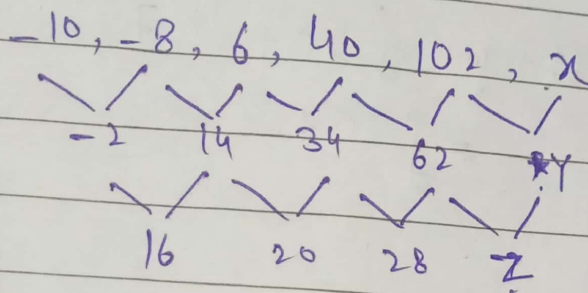 -10, -8, 6, 40, 102, x
-2 14 34 62 Y
16 20 28 Z